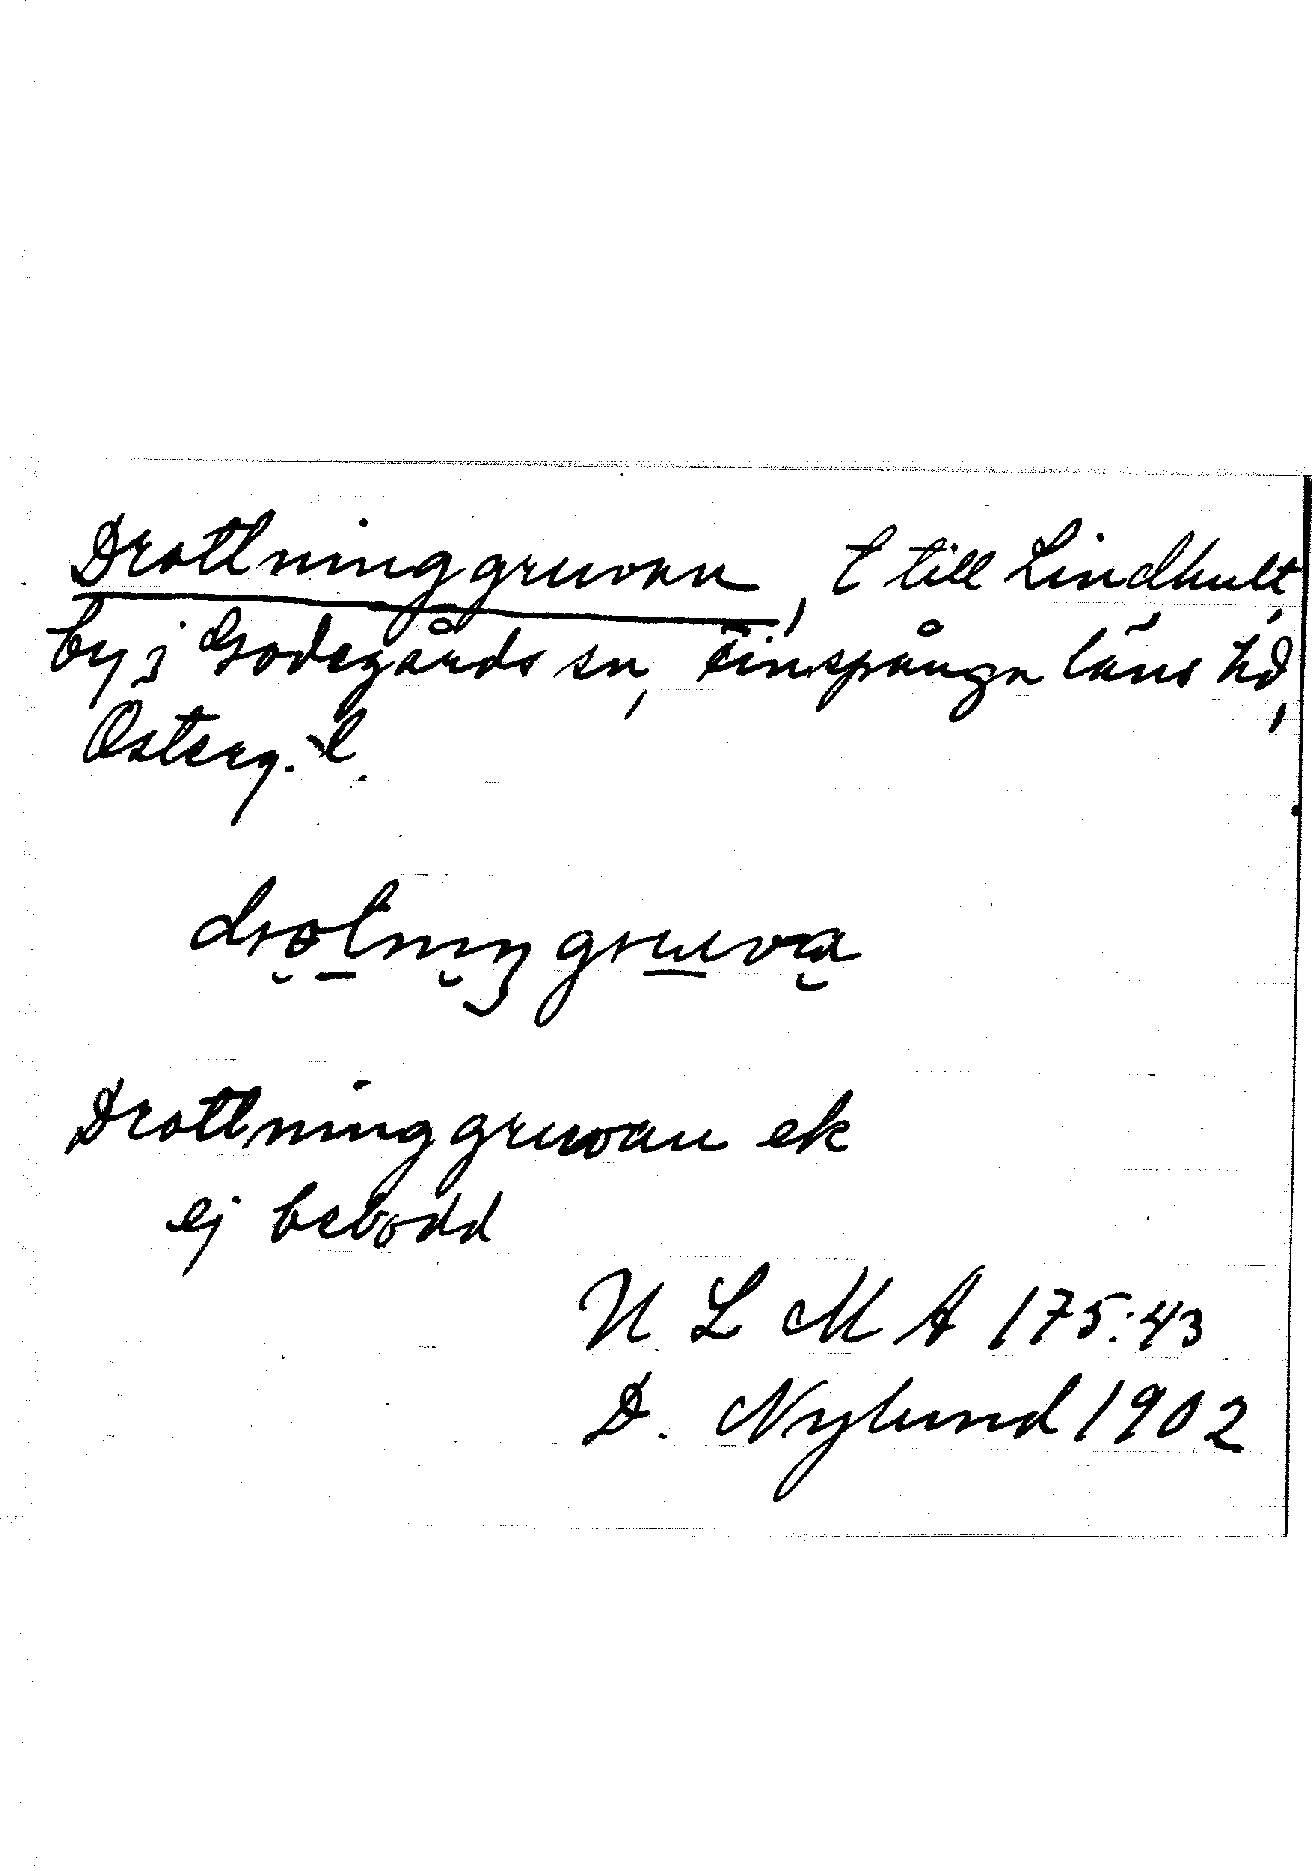 Drottninggruvan, t till Lindhult,
by i Godegårds sn, Finspånga läns hd,
Österg. l.
drotninggruva
Drottninggruvan ek
ej bebodd
N L M A 175:43
D. Nylund 1902